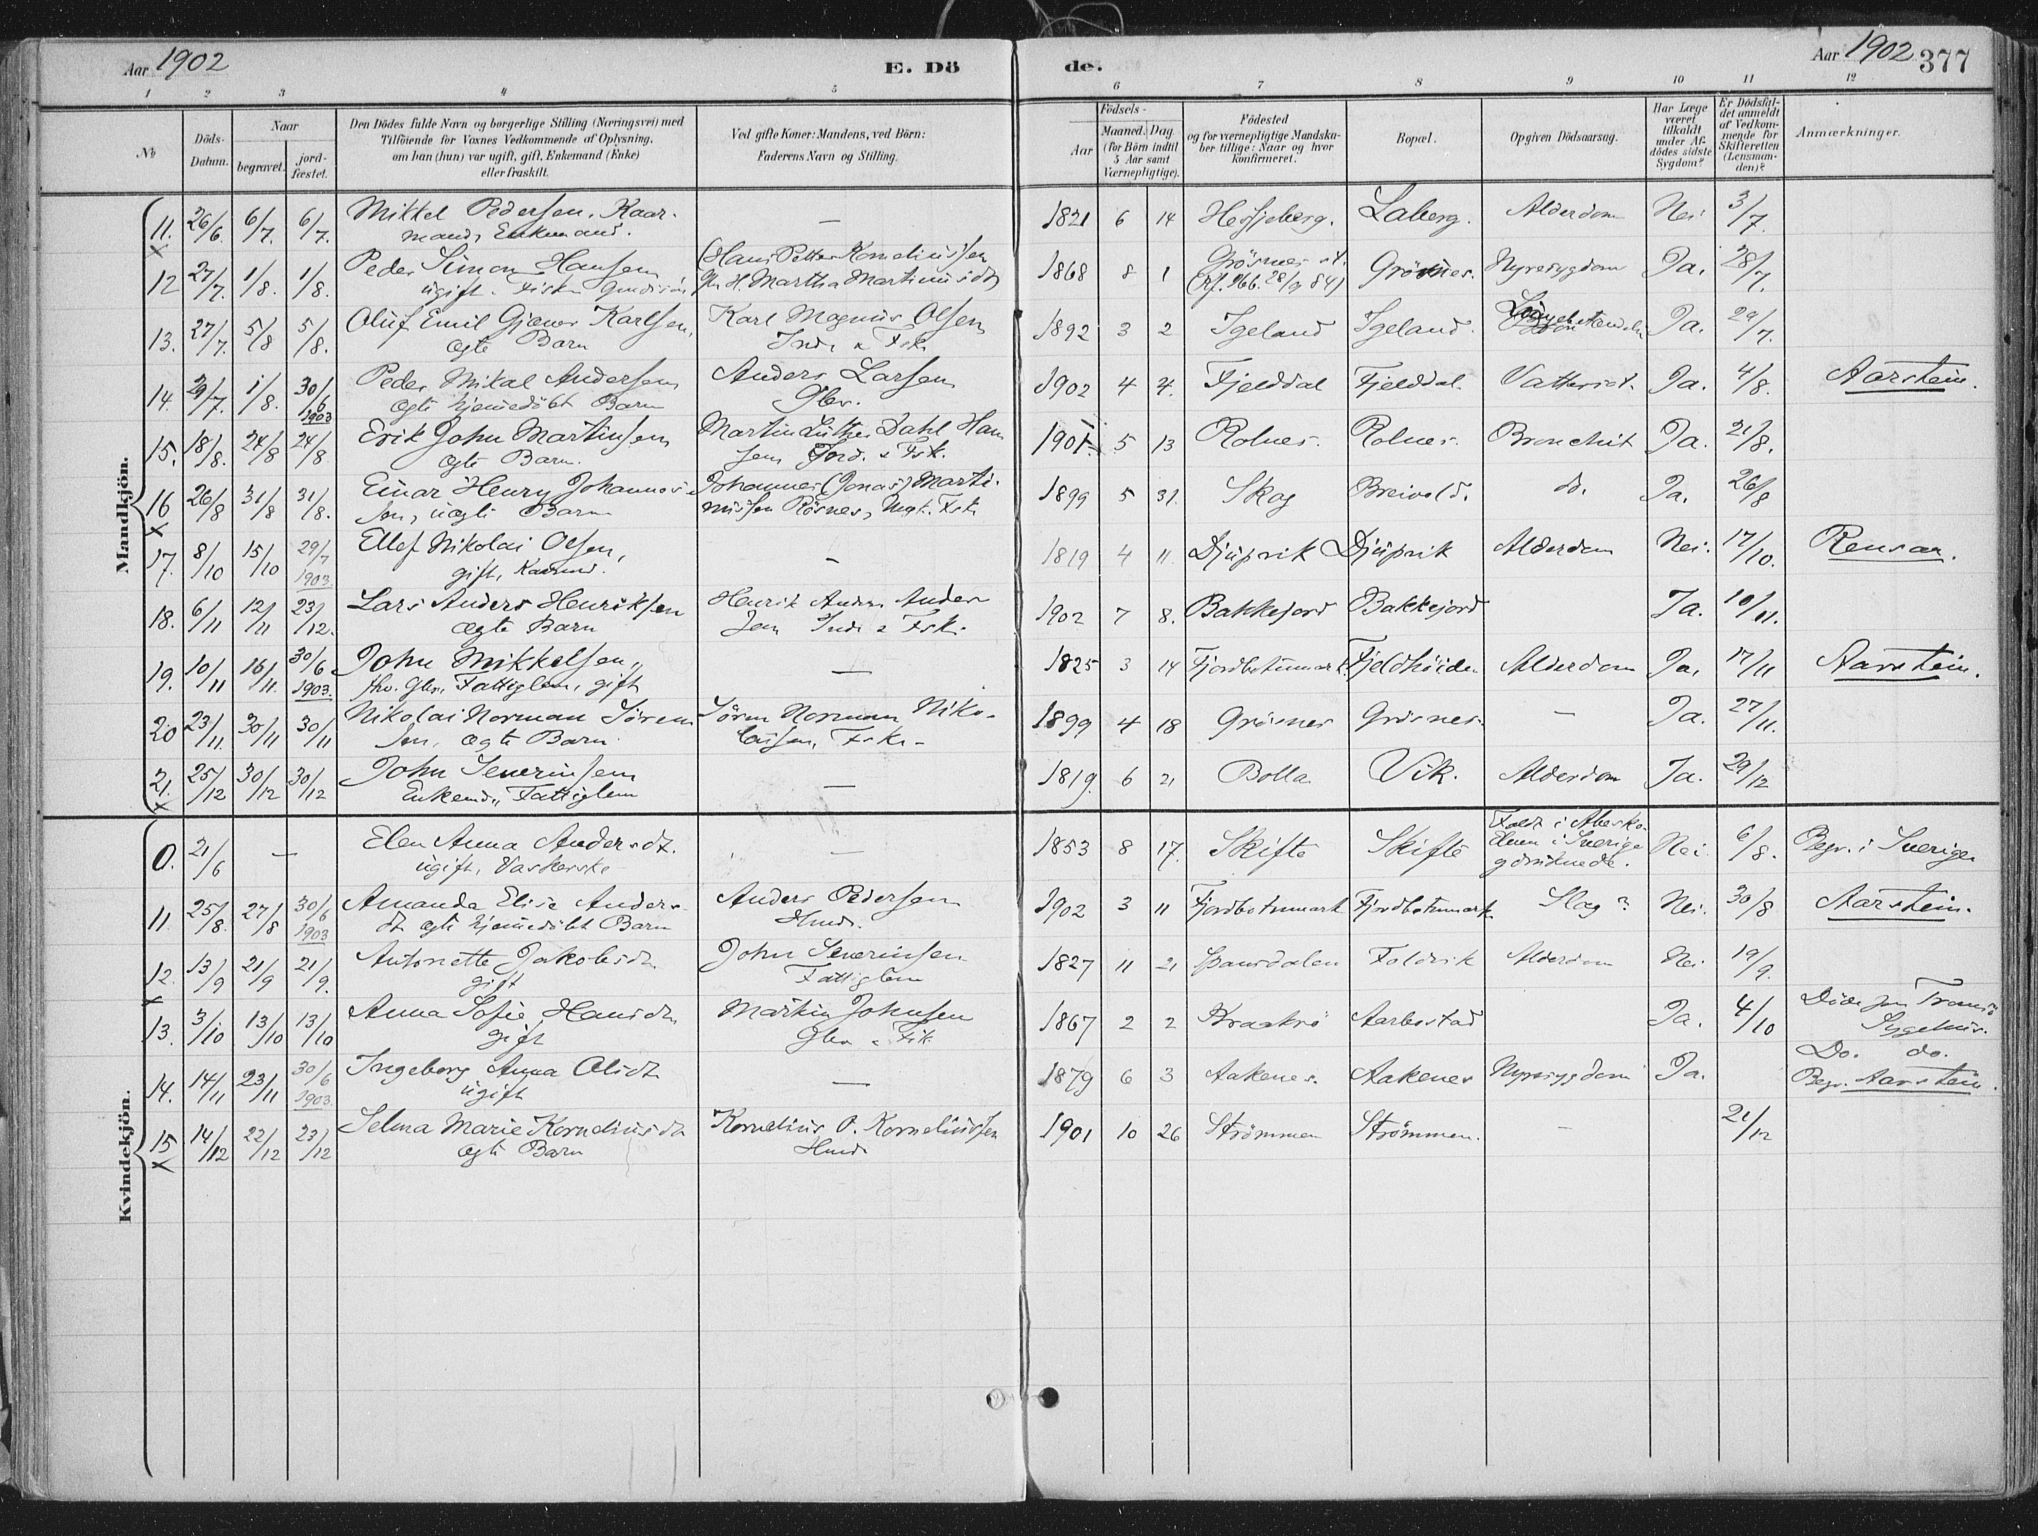 Aar 1902
E. Dö
de.
Aar 1902 377
1 2 3 4 5 6 7 8 9 10 11 12
No
Döds-Datum.
Naar
begravet.
jord-fæstet.
Den Dödes fulde Navn og borgerlige Stilling (Næringsvei) med
Tilföiende for Voxnes Vedkommende af Oplysning,
om han (hun) var ugift, gift, Enkemand (Enke)
eller fraskilt.
Ved gifte Koner: Mandens, ved Börn:
Faderens Navn og Stilling.
Födsels-
Aar
Maaned. Dag
(for Börn indtil
5 Aar samt
Værnepligtige).
Födested
og for værnepligtige Mandska-
ber tillige: Naar og hvor
konfirmeret.
Bopæl.
Opgiven Dödsaarsag.
Har Læge
været
tilkaldt
under Af-
dödes sidste
Sygdom?
Er Dödsfal-
det anmeldt
af Vedkom-
mende for
Skifteretten
(Lensman-
den)?
Anmærkninger.
Mandkjön.
11. 26/6 6/7. 6/7. Mikkel Pedersen, Kaar- — 1821 6 14 Hessjeberg. Laberg. Alderdom Nei 3/7.
mand, Enkemand.
12 27/7. 1/8. 1/8. Peder Simon Hansen (Hans Petter Korneliussen 1868 8 1 Grösnes Grösnes. Nyresygdom Ja. 28/7.
ugift. Martha Martinusdtr
13. 27/7. 5/8 5/8. Oluf Emil Gjæver Karlsen, Karl Magnus Olsen 1892 3 2 Igeland Igeland. Ja. 29/7.
ægte Barn Ind. & Fsk.
14. 29/7. 1/8. 30/6 1903 Peder Mikal Andersen Anders Larsen 1902 4 4. Fjelddal Fjelddal. Vattersot. Ja. 4/8. Aarstein.
ægte hjemmedöbt Barn Gbr.
15. 18/8. 24/8 24/8 Erik John Martinsen Martin Luther Dahl Han 1901. 5 13 Rolnes. Rolnes. Bronchit Ja. 21/8.
ægte Barn. sen Jord. & Fsk.
16 26/8 31/8 31/8. Einar Henry Johannes- Johannes (Jonas) Marti- 1899 5 31. Skog Breivold. do. Ja. 26/8
sen, uægte Barn nussen Rösnes, Ungk. Fsk.
17. 8/10 15/10 29/7 1903. Ellef Nikolai Olsen, — 1819 4 11 Djupvik Djupvik Alderdom Nei. 17/10. Rensaa.
gift, Kaarmd.
18. 6/11 12/11 23/12. Lars Anders Henriksen Henrik Anders Ander 1902 7 8. Bakkejord Bakkejord Ja. 10/11.
ægte Barn sen Ind. & Fsk.
19. 10/11 16/11. 30/6 1903. John Mikkelsen, — 1825 3 14 Fjordbotnmark. Fjeldhöiden Alderdom Ja, 17/11 Aarstein.
fhv. Gbr., Fattiglem, gift
20 23/11. 30/11 30/11 Nikolai Norman Sören Sören Norman Niko- 1899 4 18 Grösnes Grösnes. — Ja. 27/11.
sen, ægte Barn. laisen, Fsk.
21. 25/12 30/12 30/12 John Severinsen — 1819. 6 21 Bolla Vik. Alderdom Ja. 29/12
Enkemd., Fattiglem
Kvindekjön.
0. 21/6 — Elen Anna Andersdt. — 1853 8 17. Skifte Skifte Faldt i Abesko-
Elven i Sverige
ugift, Vaskerske
og druknede. Nei 6/8. Begr. i Sverige
11 25/8. 27/8 30/6 1903 Amanda Elise Anders- Anders Pedersen 1902 3 11 Fjordbotnmark Fjordbotnmark. Slag? Nei. 30/8 Aarstein.
dt. ægte hjemmedöbt Barn Husmd.
12. 13/9 21/9 21/9. Antonette Jakobsdt. John Severinsen 1827 11 21 Spansdalen Foldvik Alderdom Nei 19/9.
gift Fattiglem
13. 3/10 13/10 13/10 Anna Sofie Hansdt. Martin Johnsen 1867 2 2 Kraakrö Aarbostad Ja. 4/10 Döde paa Tromsö
gift Gbr. & Fsk. Sygehus.
14. 14/11 23/11 30/6 1903. Ingeborg Anna Olsdt. — 1879 6 3 Aakenes. Aakenes Nyresygdom Ja. Do. do.
ugift Begr. Aarstein.
15 14/12 22/12 23/12 Selma Marie Korneliusdt. Kornelius O. Korneliussen 1901 10 26 Strömmen Strömmen. — 21/12
ægte Barn Husmd.